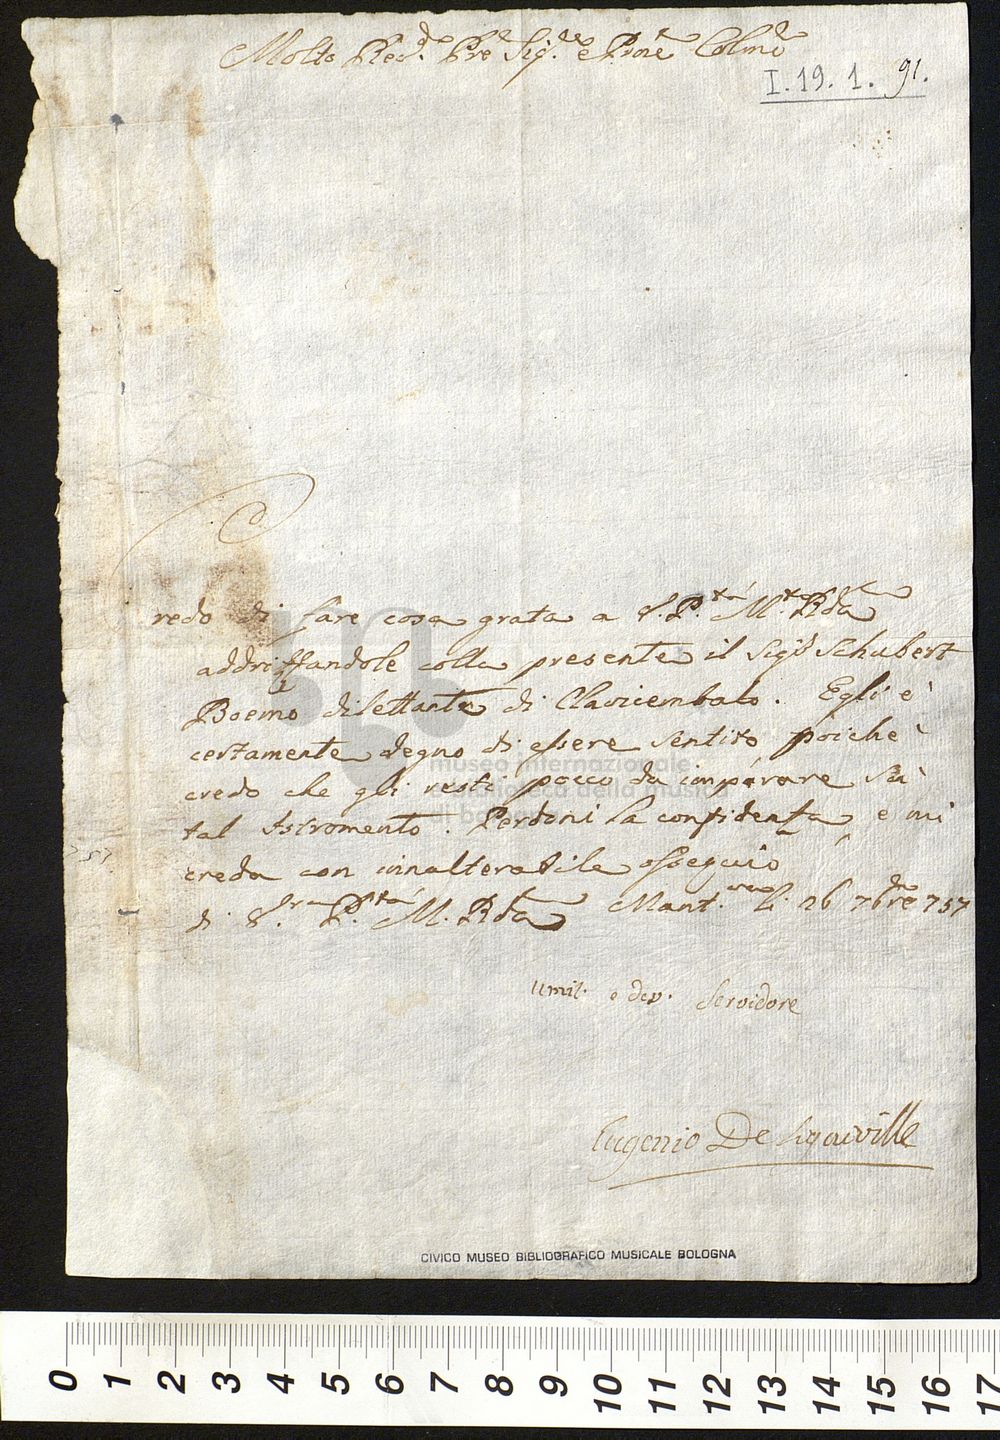 Molto Rev.do Pre Sig.re e Prone Colmo
I. 19. 1. 91.
Credo di fare cosa grata a V. P.tà M.to Rda
addriſſandole colla presente il Sigr Schubert
Boemo dilettante di Clavicembalo. Egli e'
certamente degno di eſsere sentito poiche'
credo che gli resti pocco da imparare su'
tal Istromento. Perdoni la confidenza, e mi
creda con innalterabile oſsequio
di V.ra P.tà M. Rda Mant.ova li 26 7bre 757
umil. e dev. Servidore
Eugenio De Ligniville
museo internazionale
e biblioteca della musica
di bologna
CIVICO MUSEO BIBLIOGRAFICO MUSICALE BOLOGNA
0 1 2 3 4 5 6 7 8 9 10 11 12 13 14 15 16 17